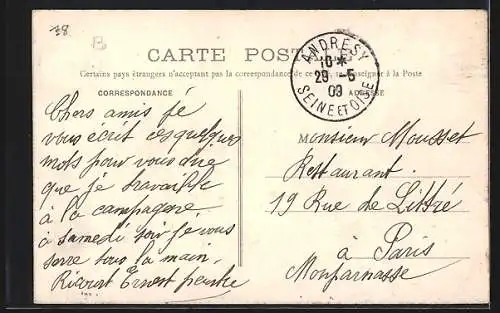 78
B
CARTE POSTALE
Certains pays étrangers n'acceptant pas la correspondance de se renseigner à la Poste
ANDRESY
10 *
29 -5
09
SEINE ET OISE
CORRESPONDANCE
ADRESSE
Chers amis jé
vous écrit ces quelques
mots pour vous dire
que jé travaille
à la campagne
à samedi soir jé vous
serre tous la main.
Ernest peintre
M
Monsieur Mousset
Restaurant.
19 Rue de Littré
à Paris
Monparnasse